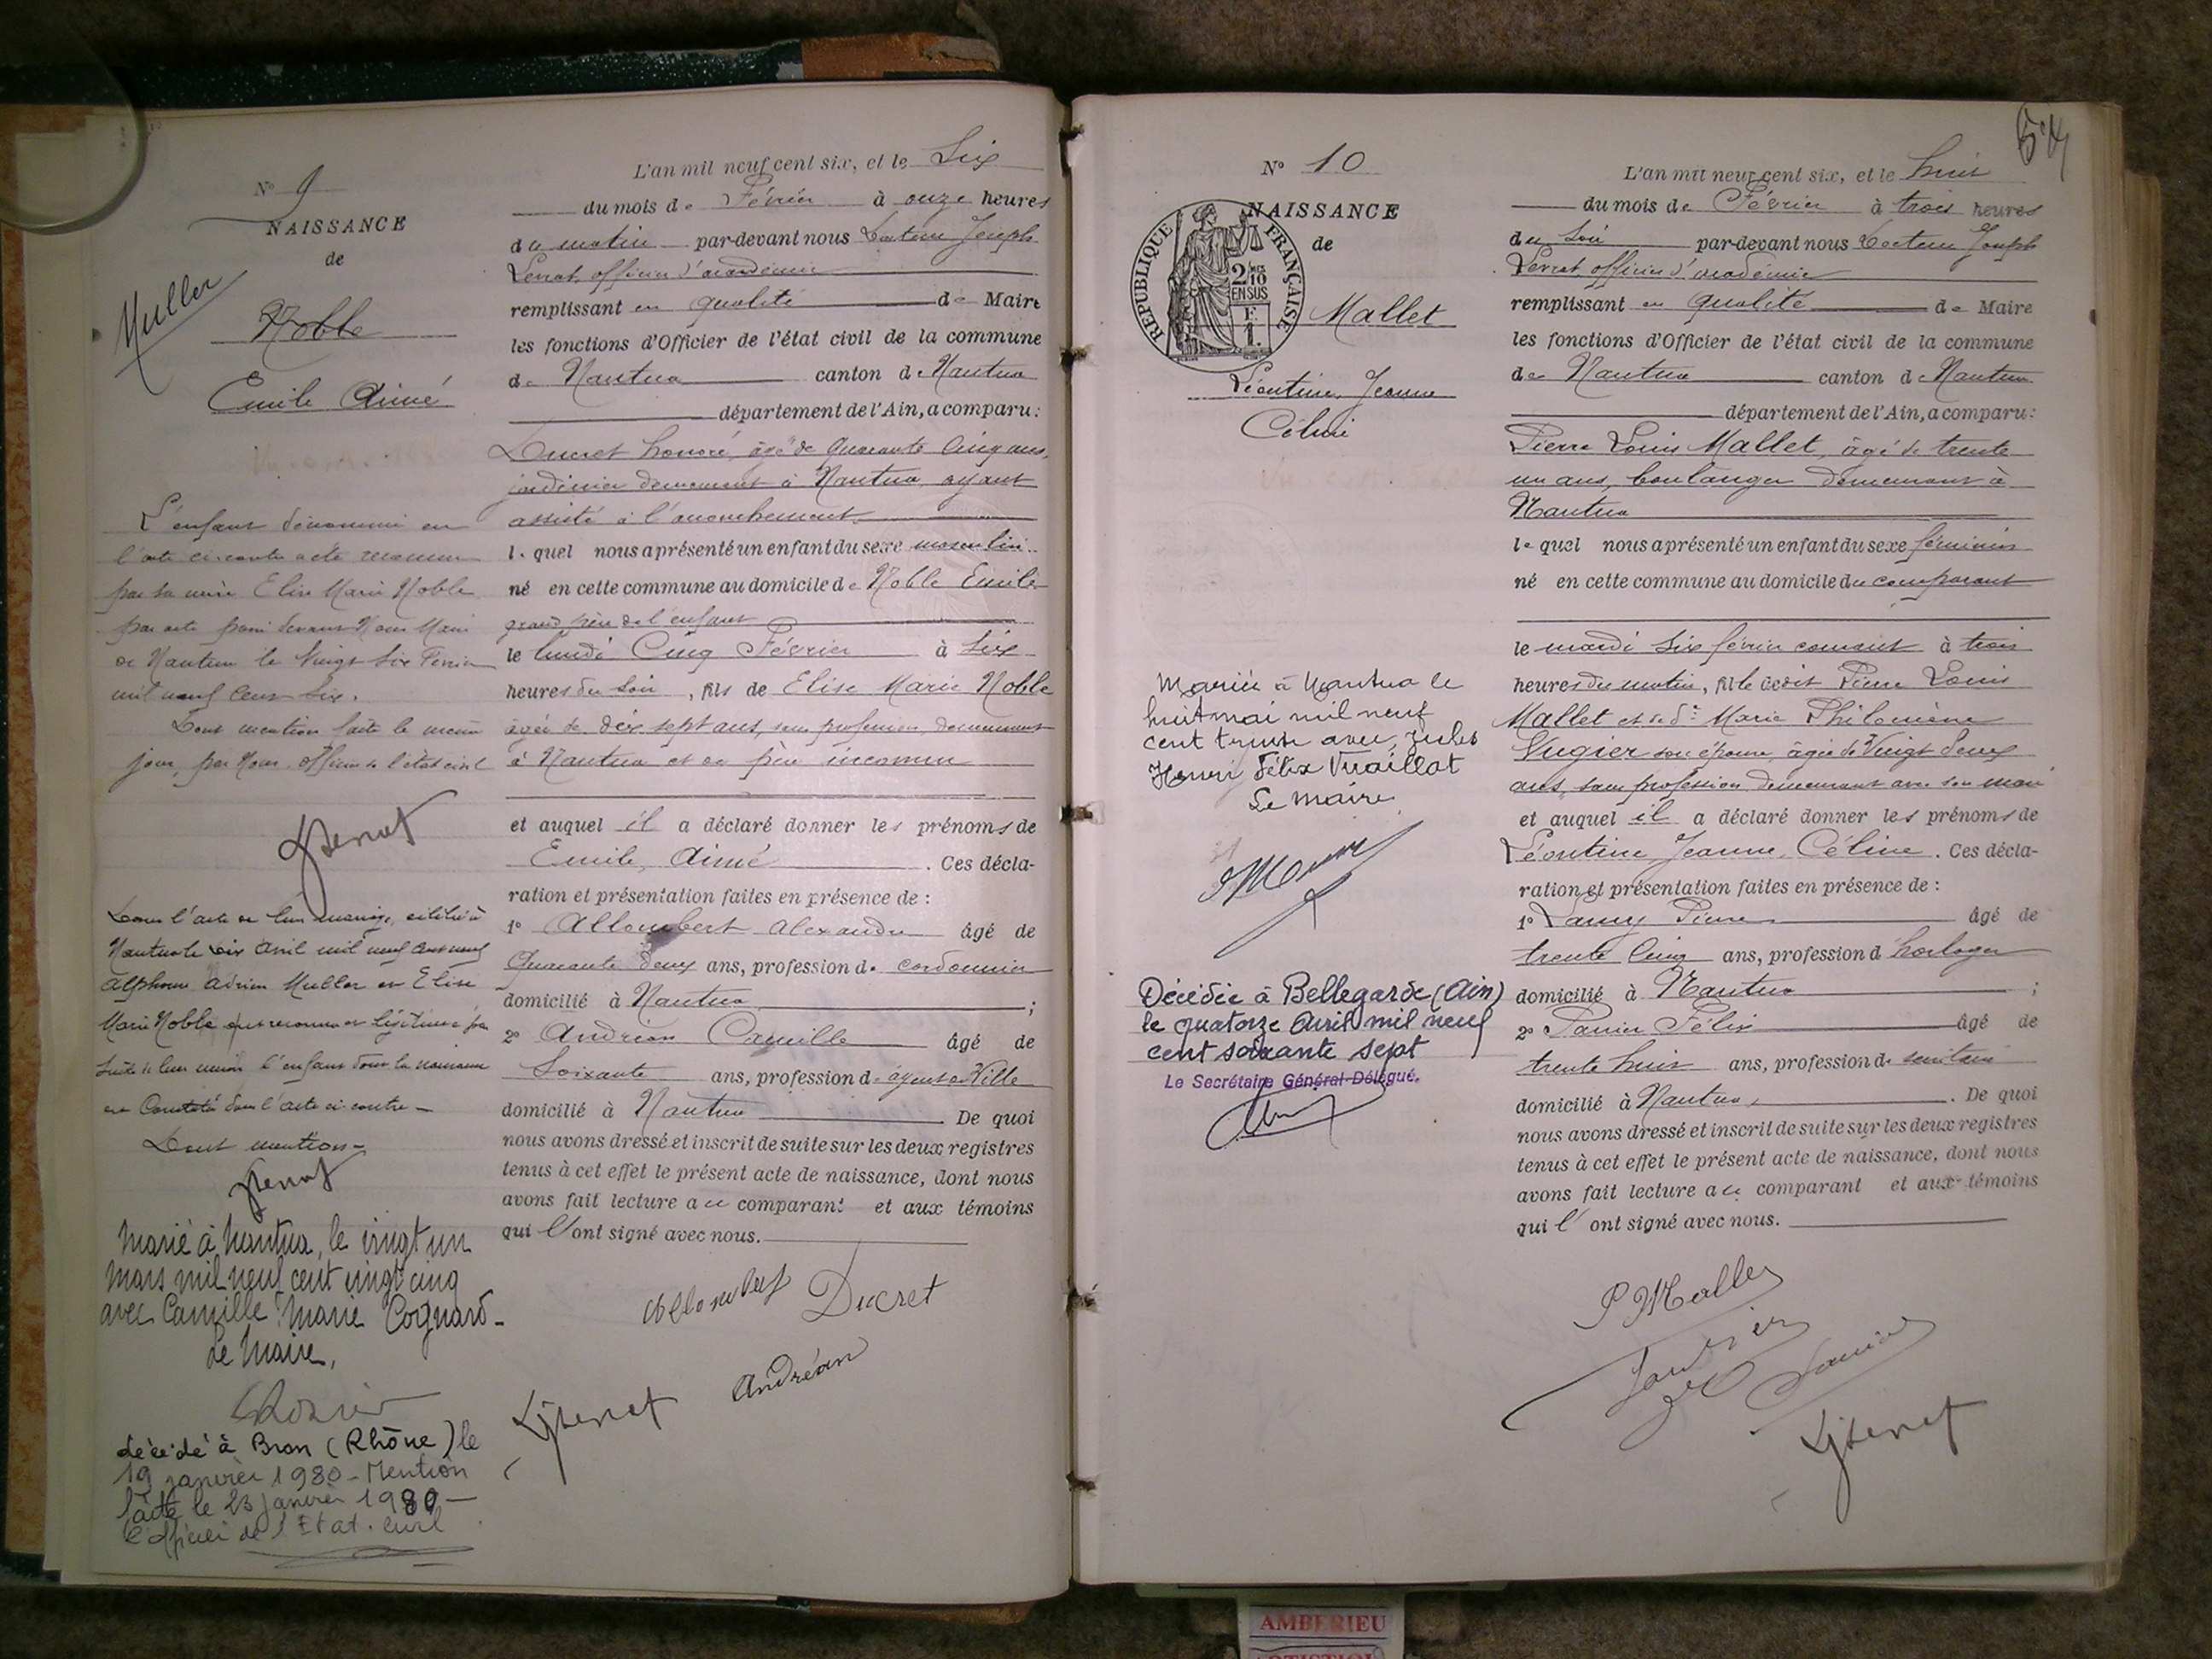 N° 9
NAISSANCE
de
Muller
Noble
Emile Aimé
L'enfant dénommé en
l'acte ci-contre a été reconnu
par sa mère Elise Marie Noble
par acte passé devant Nous Maire
de Nantua le Vingt six Février
mil neuf cent six.
Dont mention faite le même
jour, par Nous, officier de l'état civil
Dans l'acte de leur mariage, célébré à
Nantua le dix avril mil neuf cent neuf
Alphonse Adrien Muller et Elise
Marie Noble ont reconnu et légitimé par
suite de leur union l'enfant dont la naissance
est Constatée dans l'acte ci-contre —
Dont mention —
Marié à Nantua, le vingt un
mars mil neuf cent vingt cinq
avec Camille Marie Cognard -
Le Maire,
décédé à Bron (Rhône) le
19 janvier 1980 - Mention
faite le 23 janvier 1980 —
l'officier de l'Etat-civil
L'an mil neuf cent six, et le Six
du mois de Février à onze heures
du matin par-devant nous Docteur Joseph
officier d'académie
remplissant en qualité de Maire
les fonctions d'Officier de l'état civil de la commune
de Nantua canton de Nantua
département de l'Ain, a comparu:
Ducret honoré, âgé de quarante cinq ans,
jardinier demeurant à Nantua, ayant
assisté à l'accouchement
lequel nous a présenté un enfant du sexe masculin
né en cette commune au domicile de Noble Emile
grand père de l'enfant
le lundi Cinq Février à six
heures du soir, fils de Elise Marie Noble
âgée de dix sept ans, sans profession demeurant
à Nantua et de père inconnu
et auquel il a déclaré donner les prénoms de
Emile, Aimé. Ces décla-
ration et présentation faites en présence de:
1° Allombert Alexandre âgé de
Quarante deux ans, profession de cordonnier
domicilié à Nantua;
2° Andréan Camille âgé de
Soixante ans, profession d'agent de Ville
domicilié à Nantua. De quoi
nous avons dressé et inscrit de suite sur les deux registres
tenus à cet effet le présent acte de naissance, dont nous
avons fait lecture au comparant et aux témoins
qui l'ont signé avec nous.
Allombert Ducret
Andréan
N° 10
NAISSANCE
de
REPUBLIQUE FRANÇAISE
2/10 MES
EN SUS
F.
1.
Mallet
Léontine, Jeanne
Céline
Mariée à Nantua le
huit mai mil neuf
cent trente avec, Jules
Henri Félix Vuaillat
Le maire
Décédée à Bellegarde (Ain)
le quatorze Avril mil neuf
cent soixante sept
Le Secrétaire Général-Délégué.
54
L'an mil neuf cent six, et le huit
du mois de Février à trois heures
du soir par-devant nous Docteur Joseph
officier d'académie
remplissant en qualité de Maire
les fonctions d'Officier de l'état civil de la commune
de Nantua canton de Nantua
département de l'Ain, a comparu:
Pierre Louis Mallet, âgé de trente
un ans, boulanger demeurant à
Nantua
lequel nous a présenté un enfant du sexe féminin
né en cette commune au domicile du comparant
le mardi six février courant à trois
heures du matin, fille dudit Pierre Louis
Mallet et de de Marie Philomène
Vugier son épouse, âgée de Vingt deux
ans, sans profession demeurant avec son mari
et auquel il a déclaré donner les prénoms de
Léontine Jeanne, Céline. Ces décla-
ration et présentation faites en présence de:
1° Lamy Pierre âgé de
trente cinq ans, profession d'horloger
domicilié à Nantua;
2° Félix âgé de
trente huit ans, profession de
domicilié à Nantua,. De quoi
nous avons dressé et inscrit de suite sur les deux registres
tenus à cet effet le présent acte de naissance, dont nous
avons fait lecture au comparant et aux témoins
qui l'ont signé avec nous.
P Mallet
AMBERIEU